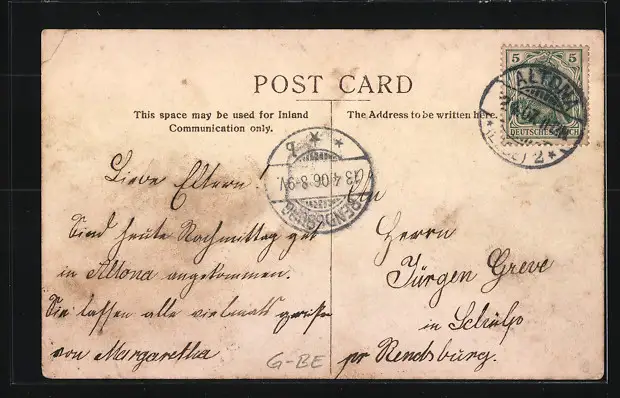 POST CARD
This space may be used for Inland
Communication only.
The Address to be written here.
5 5
DEUTSCHES REICH
ALTONA
2
RENDSBURG
13.4.06.8-9V.
Liebe Eltern!
Sind heute Nachmittag gut
in Altona angekommen.
Sie lassen alle vielmals grüßen
von Margaretha
G-BE
An
Herrn
Jürgen Greve
in Schülp
pr Rendsburg.